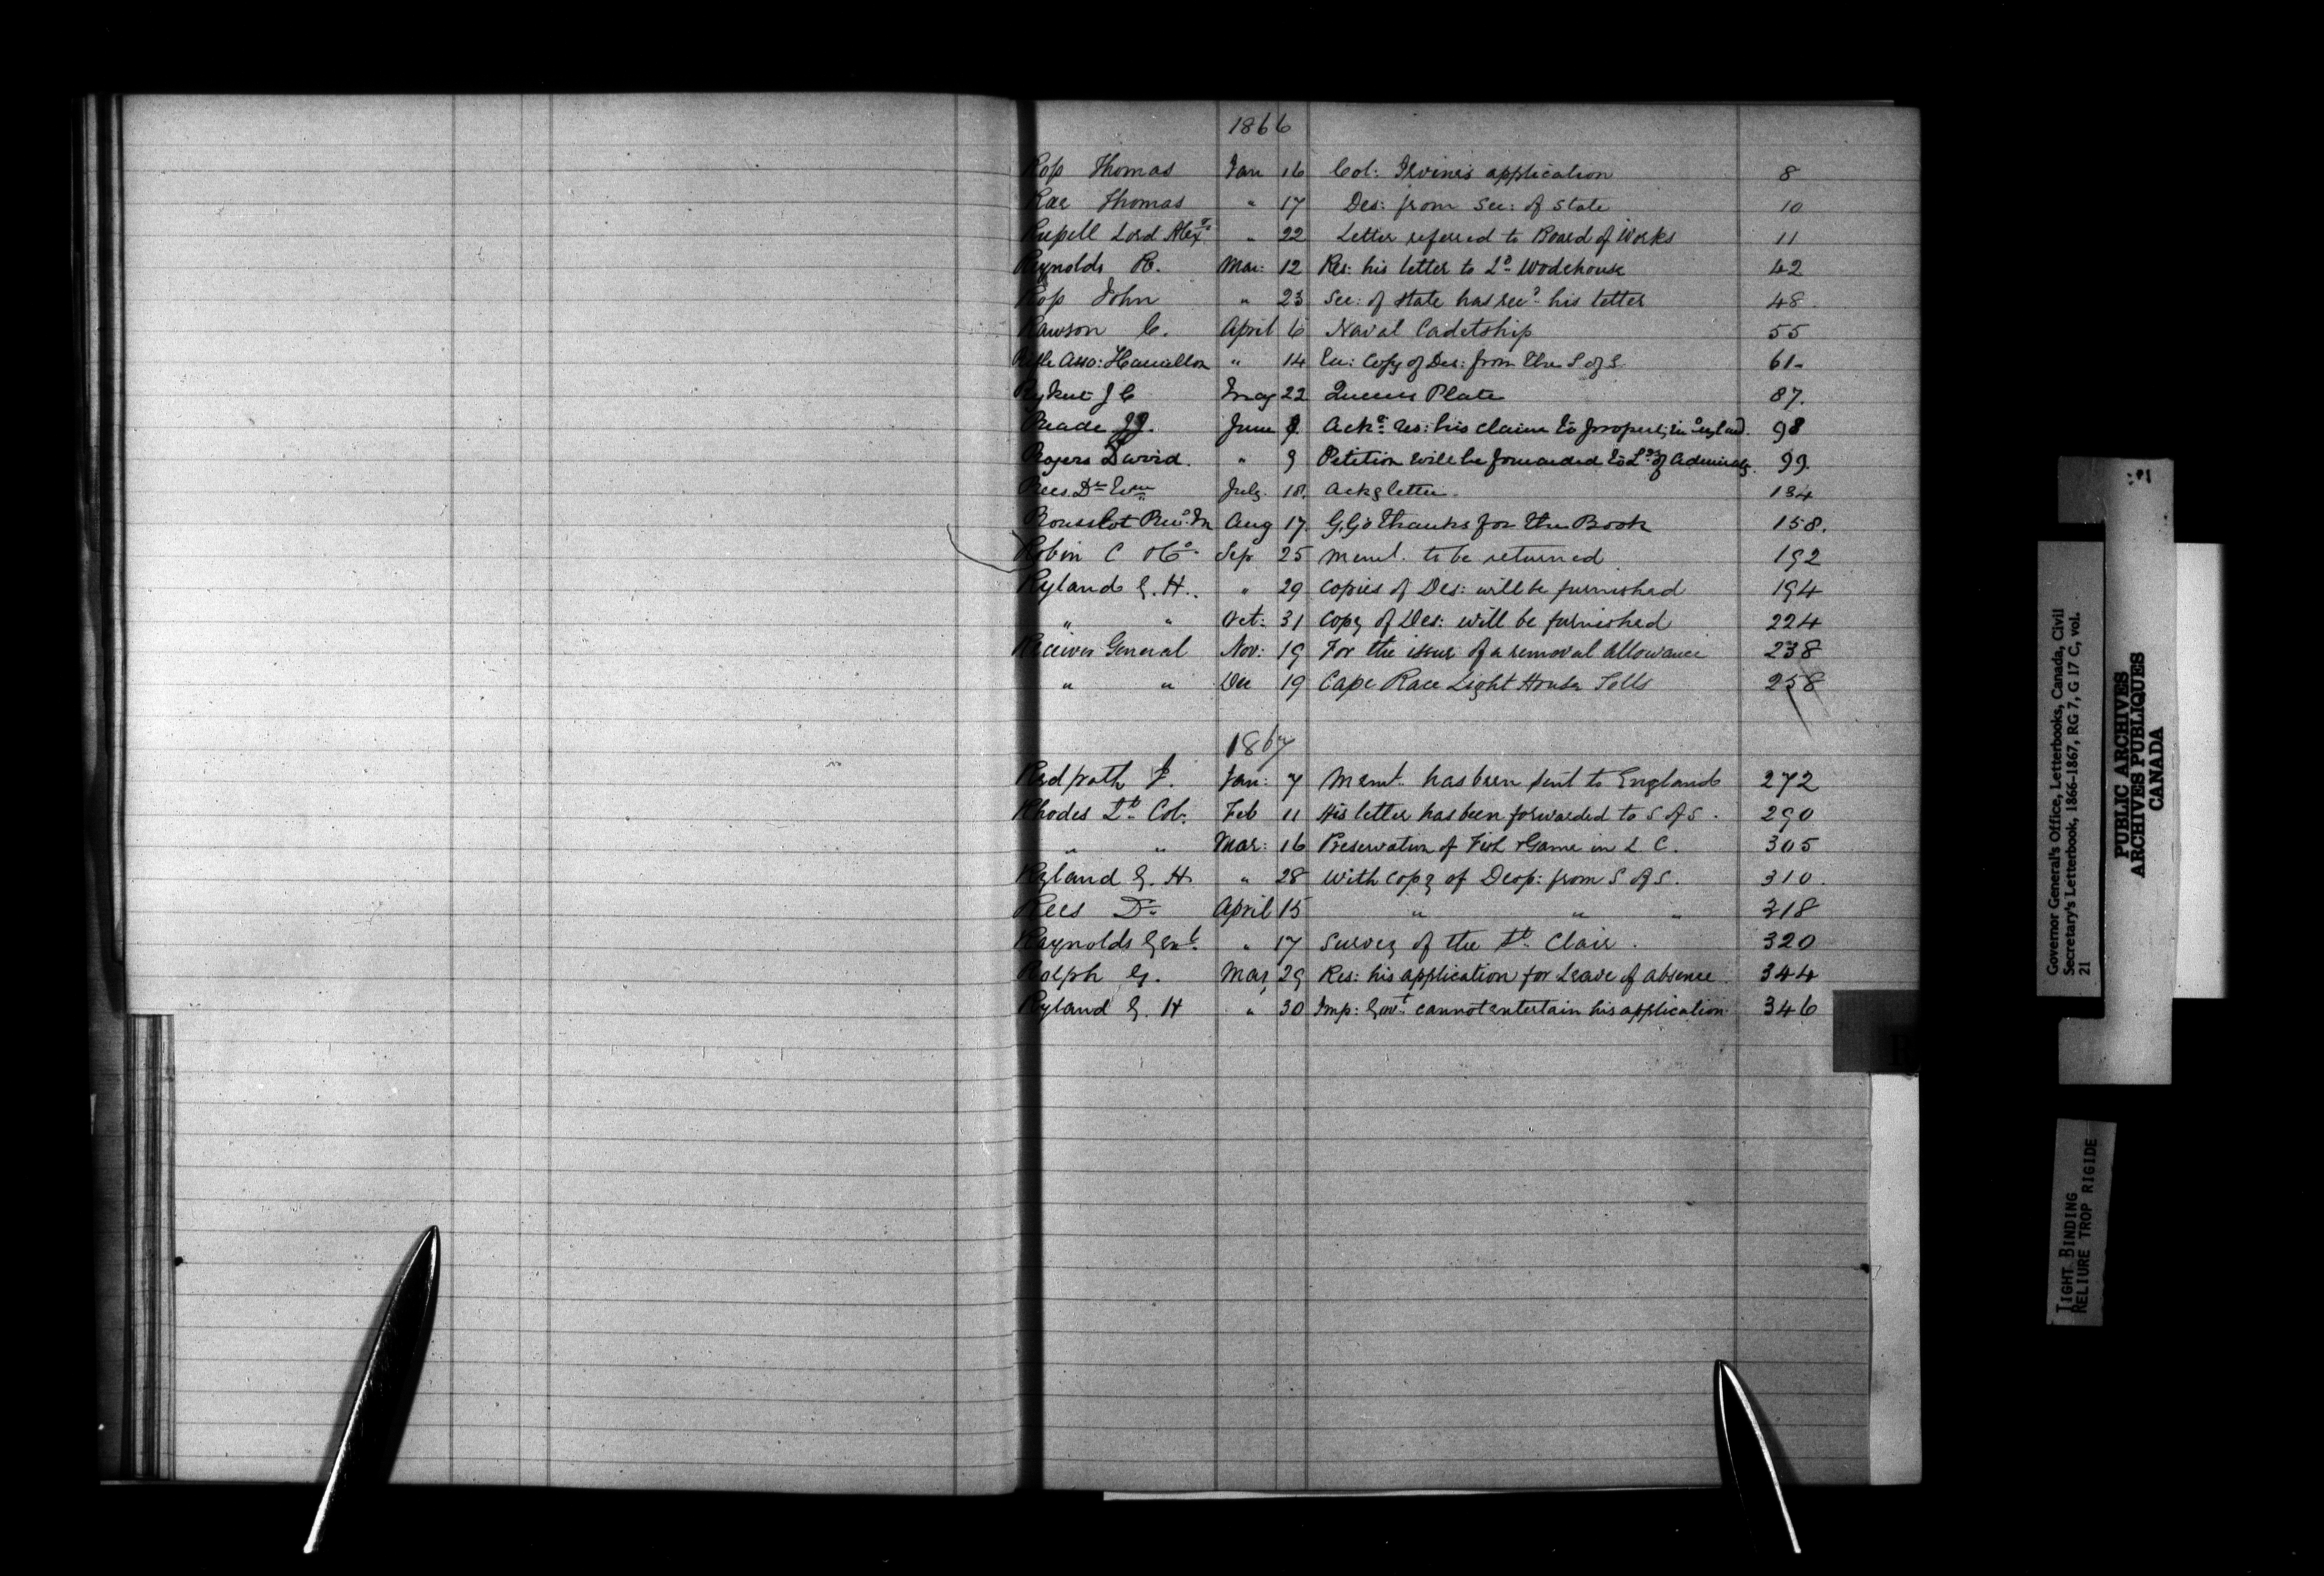 1866
Ross Thomas Jan 16 Col: Irvine's application 8
Rae Thomas " 17 Des: from Sec: of State 10
Russell Lord Alexr " 22 Letter referred to Board of Works 11
Reynolds R. Mar: 12 Res: his letter to Ld Wodehouse 42
Ross John " 23 Sec: of State has recd his letter 48.
Rawson C. April 6 Naval Cadetship 55
Rifle Asso: Hamilton " 14 En: Copy of Des: from the S of S. 61-
Rykert J C May 22 Queens Plate 87.
Reade June 9. Ackg res: his claim to property in England. 98
Rogers David. " 9 Petition will be forwarded to Lds of Admiralty. 99.
Rees Dr Wm July. 18. Ackg letter. 134
Rousselot Revd Aug 17. G,G's thanks for the Book 158.
Robin C & Co. Sep 25 Meml. to be returned 192
Ryland G. H.. " 29 Copies of Des: will be furnished 194
" " Oct: 31 Copy of Des: will be furnished 224
Receiver General Nov: 19 For the issue of a removal allowance 238
" " Dec 19 Cape Race Light House Tolls 258
1867
Redpath J. Jan: 7 Memt. has been sent to England 272
Rhodes Lt. Col. Feb 11 His letter has been forwarded to S of S. 290
" " Mar: 16 Preservation of Fish & Game in L C. 305
Ryland G. H. " 28 With copy of Desp: from S of S. 310.
Rees Dr. April 15 " " " 318
Raynolds Genl. " 17 Survey of the St. Clair. 320
Ralph G. May 29 Res: his application for Leave of absence. 344
Ryland G. H " 30 Imp: Govt. cannot entertain his application 346
Governor General's Office, Letterbooks, Canada, Civil
Secretary's Letterbook, 1866-1867, RG 7, G 17 C, vol.
21
PUBLIC ARCHIVES
ARCHIVES PUBLIQUES
CANADA
TIGHT BINDING
RELIURE TROP RIGIDE